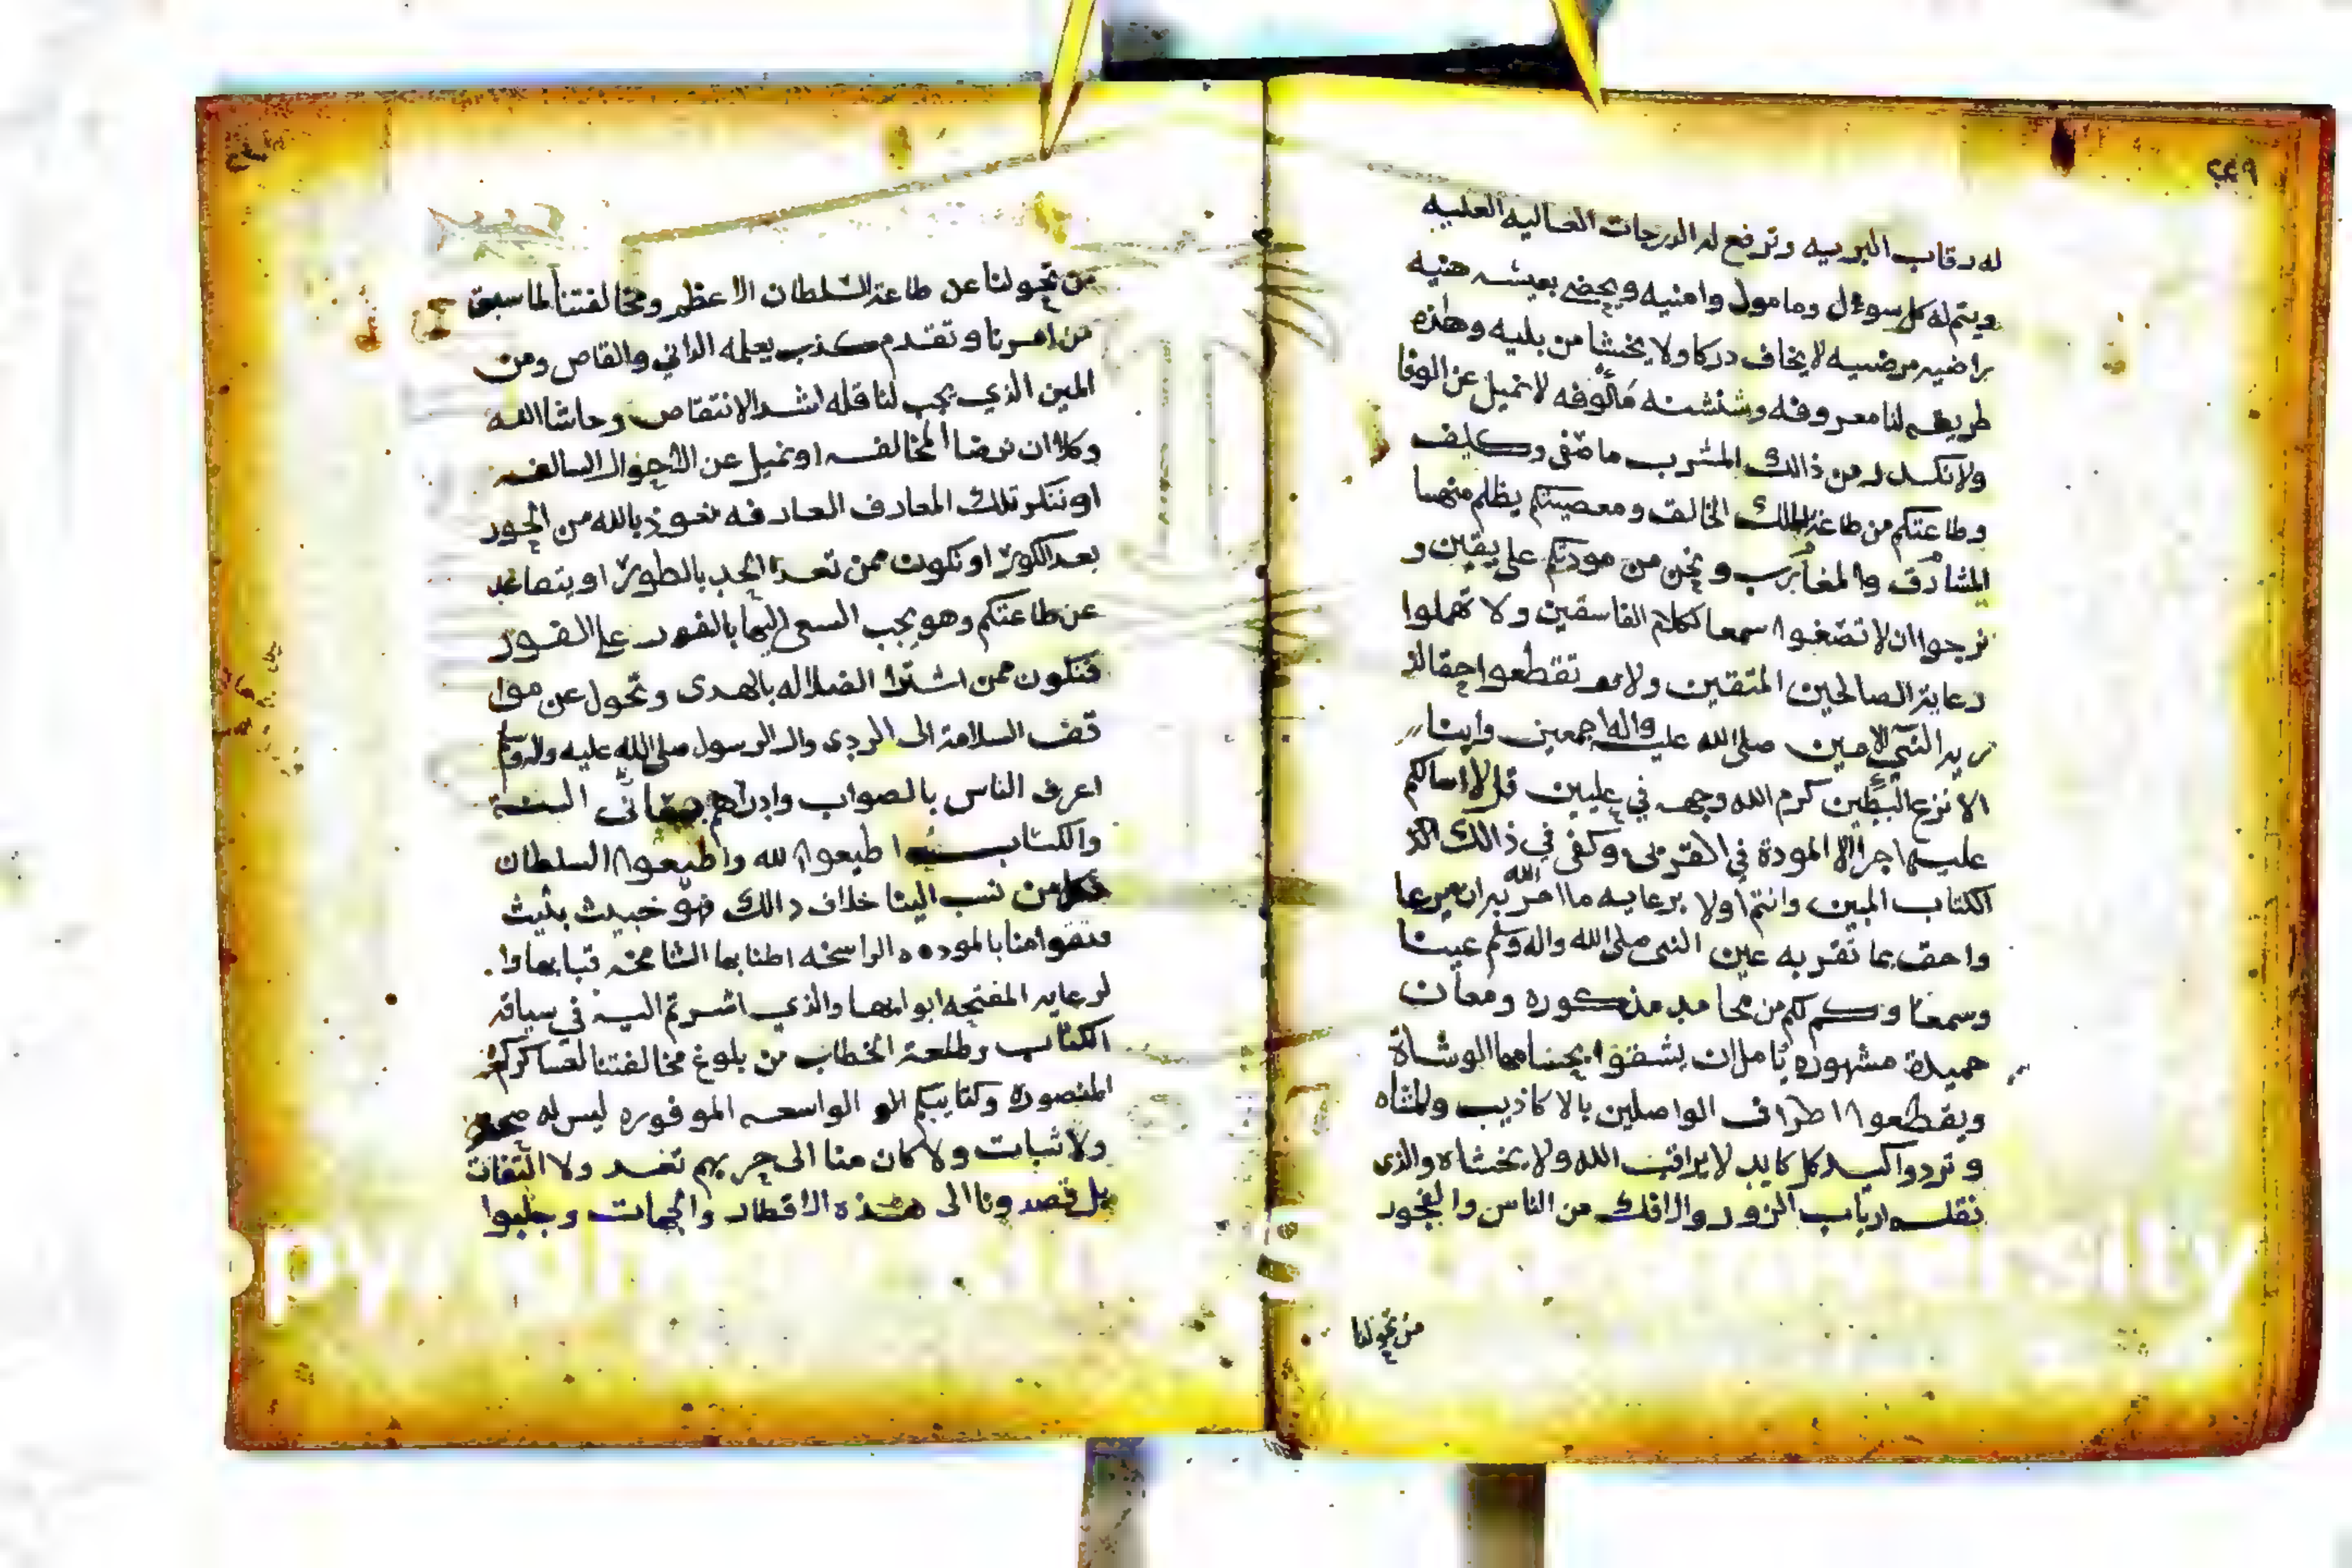 ٢٤٩
له رقاب البريه وترفع له الدرجات العاليه العليه
ويتم له كل سوءل ومامول وامنيه ويحضى بعيشه هنيه
راضيه مرضيه لا يخاف دركا ولا يخشا من بليه وهذه
طريقه لنا معروفه وشنشنه مالوفه لا نميل عن الوفا
ولا نكدر من ذالك المشرب ما صفى وكيف
وطاعتكم من طاعة الملك الخالق ومعصيتكم يظلم منها
المشارق والمغارب ونحن من مودتكم على يقين و
نرجوا ان لا تصغوا سمعا لكلام الفاسقين ولا تهملوا
رعاية الصالحين المتقين ولا تقطعوا حقا لذ
رية النبي الامين صلى الله عليه واله اجمعين وابنا
الانزع البطين كرم الله وجهه في عليين قل لا اسالكم
عليه اجرا الا المودة في القربى وكفى في ذالك الذكر
الكتاب المبين وانتم اولا برعايه ما امر الله به ان يرعا
واحق بما تقر به عين النبي صلى الله واله وسلم عينا
وسمعا وكم لكم من محامد مذكوره ومعان
حميدة مشهوره ياملان يشفوا بحسامها الوشاة
ويقطعوا اطراف الواصلين بالاكاذيب والمشاه
وتردوا كيد كل كايد لا يراقب الله ولا يخشاه والذي
نقله ارباب الزور والافك من الناس والفجور
من تحولنا
من تحولنا عن طاعة السلطان الاعظم ومخالفتنا لما سبق
من امرنا وتقدم كذب يعلمه الداني والقاص ومن
المين الذي يجب لناقله اشد الانتقاص وحاشا الله
وكلا ان نرضا المخالفه او نميل عن الاحوال السالفه
او ننكر تلك المعارف العارفه نعوذ بالله من الحور
بعد الكور او نكون ممن تعدا الحد بالطور او يتصاعد
عن طاعتكم وهو يجب السعي اليها بالفور على الفور
فنكون ممن اشترا الضلاله بالهدى وتحول عن موا
قف السلامة الى الردى وال الرسول صلى الله عليه واله وسلم
اعرف الناس بالصواب وادراهم بمعاني السنة
والكتاب اطيعوا الله واطيعوا السلطان
فمن نسب الينا خلاف ذالك فهو خبيث بثيث
فثقوا منا بالموده الراسخه اطنابها الشامخه قبابها وا
لرعايه المفتحه ابوابها والذي اشرتم اليه في سياقة
الكتاب وطلعة الخطاب من بلوغ مخالفتنا لعساكركم
المنصوره وكتايبكم الواسعه الموفوره ليس له صحه
ولا ثبات ولا كان منا الى حربهم تعمد ولا التفات
بل قصدونا الى هذه الاقطار والجهات وجلبوا